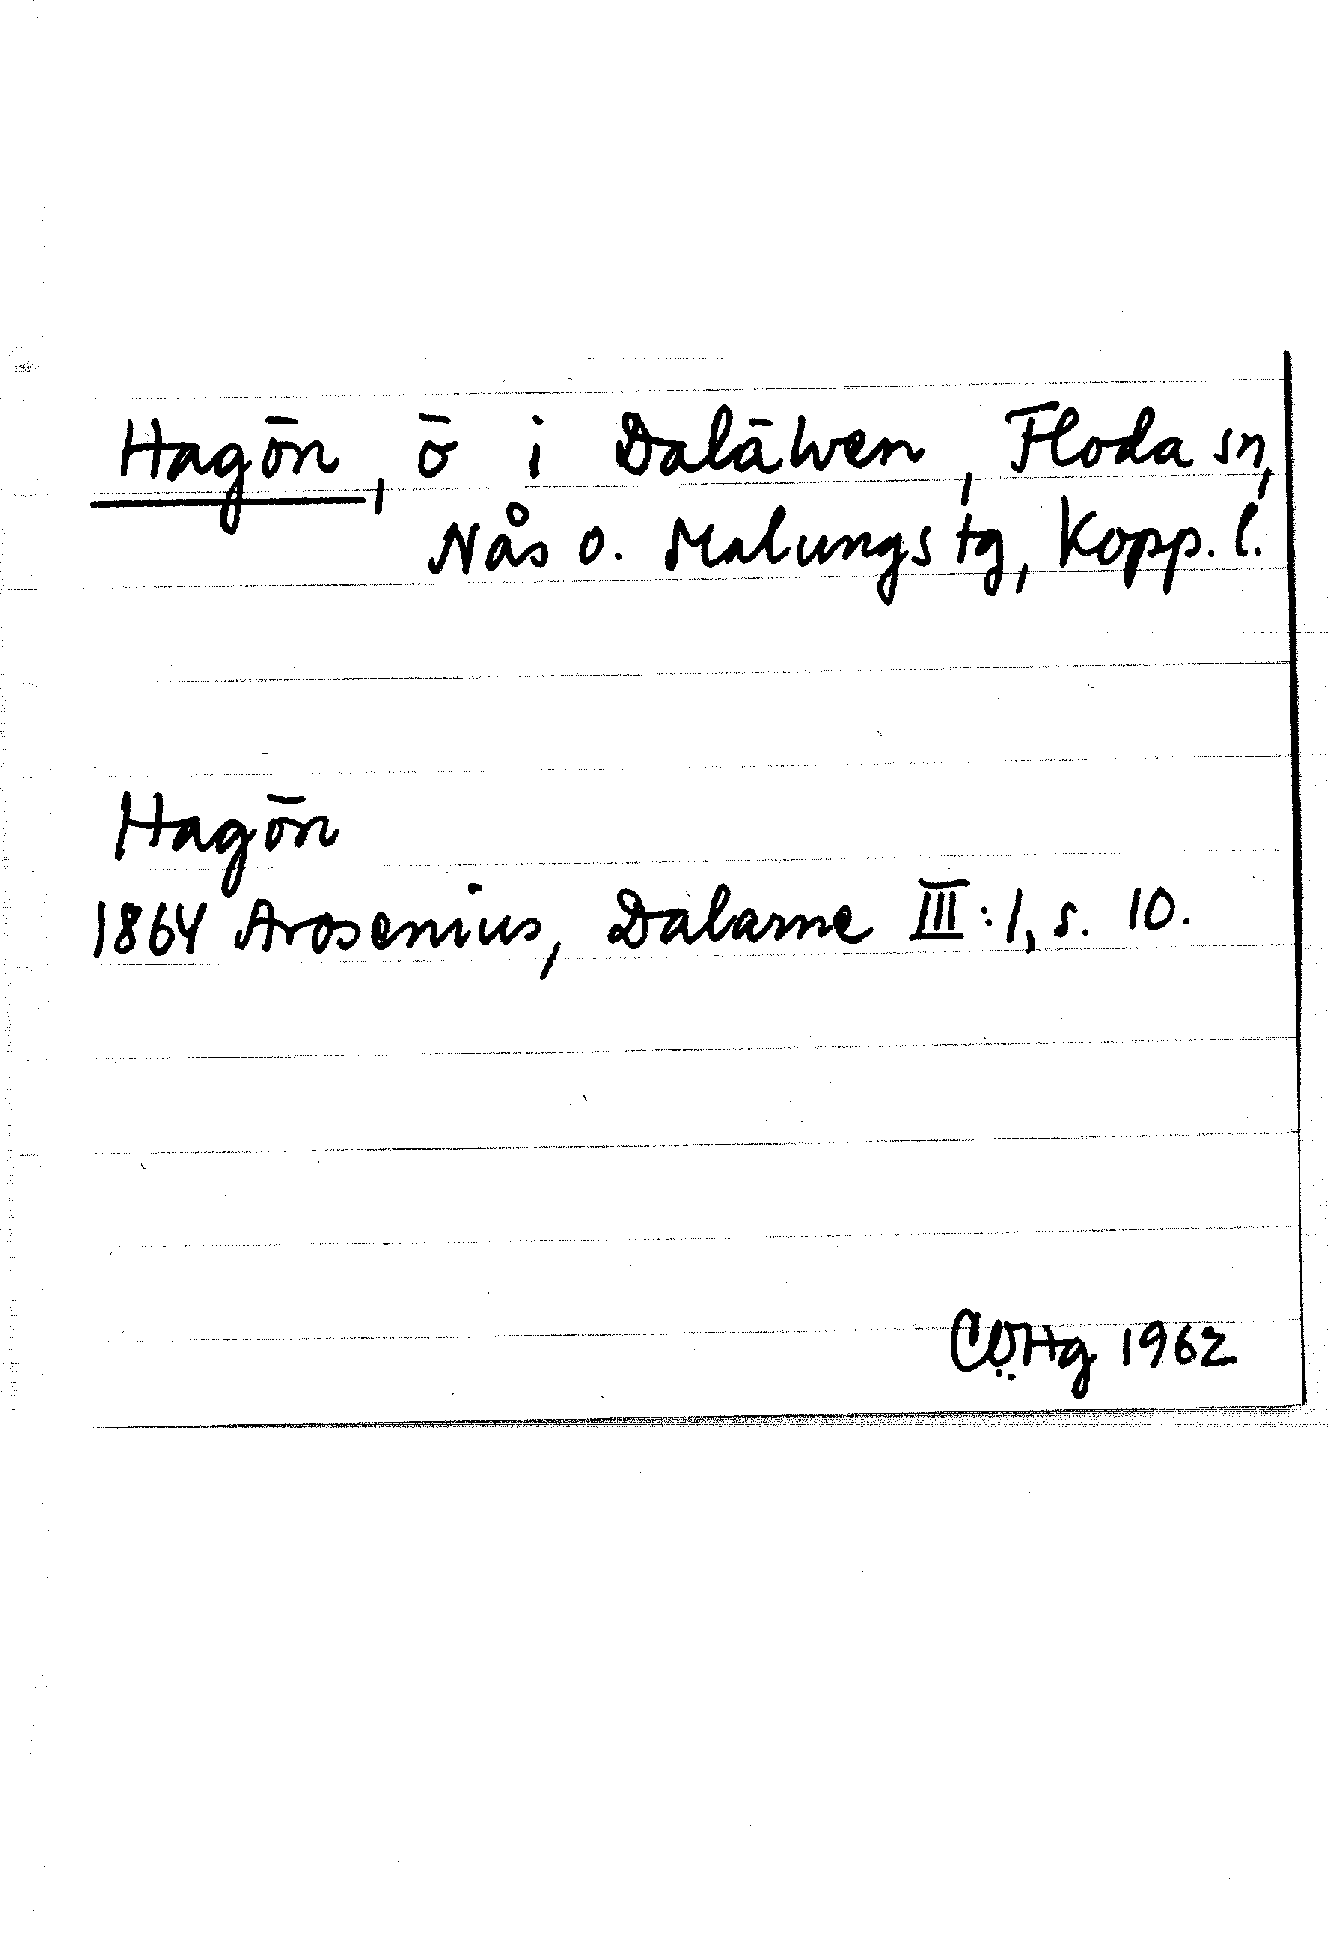 Hagön, ö i Dalälven, Floda sn,
Nås o. Malungs tg, Kopp. l.
Hagön
1864 Arosenius, Dalarne III:1, s. 10.
CÖHg 1962